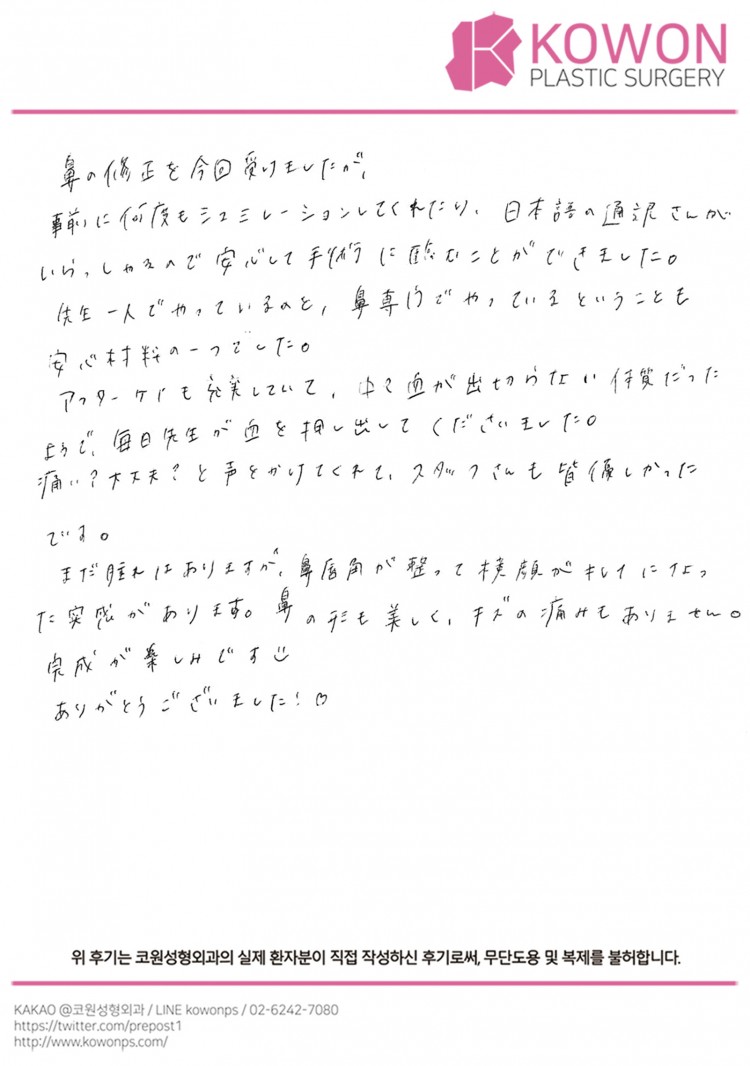 KOWON
PLASTIC SURGERY
鼻の修正を今回受けましたが、
事前に何度もシュミレーションしてくれたり、日本語の通訳さんが
いらっしゃるので安心して手術に臨むことができました。
先生一人でやっているのと、鼻専門でやっているということも
安心材料の一つでした。
アフターケアも充実していて、中々血が出切らない体質だった
ようで、毎日先生が血を押し出してくださいました。
痛い?大丈夫?と声をかけてくれて、スタッフさんも皆優しかった
です。
まだ腫れはありますが、鼻唇角が整って横顔がキレイになっ
た実感があります。鼻の形も美しく、キズの痛みもありません。
完成が楽しみです
ありがとうございました!
위 후기는 코원성형외과의 실제 환자분이 직접 작성하신 후기로써, 무단도용 및 복제를 불허합니다.
KAKAO @코원성형외과 / LINE kowonps / 02-6242-7080
https://twitter.com/prepost1
http://www.kowonps.com/